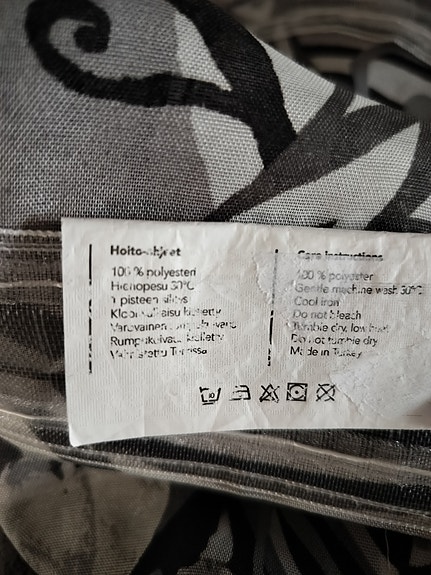 Hoito-ohjeet
100 % polyesteri
Hienopesu 30°C
1 pisteen silitys
Kloorivalkaisu kielletty
Rumpukuivaus kielletty
Valmistettu Turkissa
Care instructions
100 % polyester
Gentle machine wash 30°C
Cool iron
Do not bleach
Tumble dry, low heat
Do not tumble dry
Made in Turkey